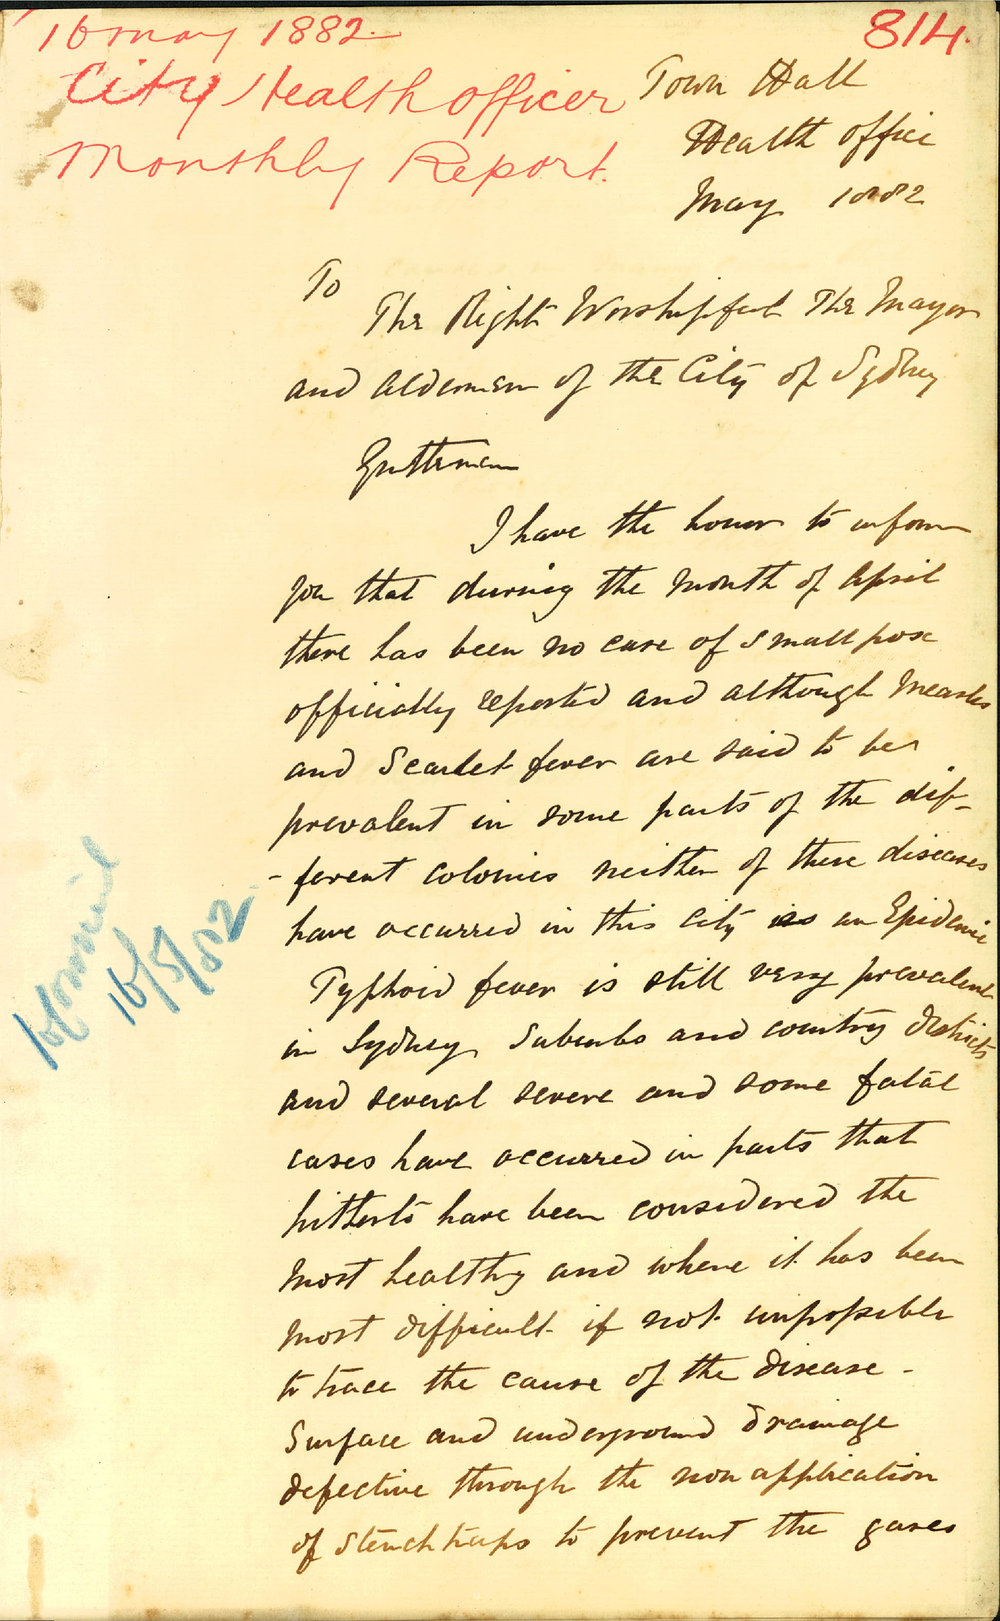 16 may 1882.
814.
City Health officer
Monthly Report.
Town Hall
Health office
May 1882
To
The Right Worshipful The Mayor
and Aldermen of the City of Sydney
Gentlemen
I have the honor to inform
you that during the month of April
there has been no case of small pox
officially reported and although Measles
and Scarlet fever are said to be
prevalent in some parts of the dif-
-ferent colonies neither of these diseases
have occurred in this city as an Epidemic
Typhoid fever is still very prevalent
in Sydney, Suburbs and country districts
and several severe and some fatal
cases have occurred in parts that
hitherto have been considered the
most healthy and where it has been
most difficult if not impossible
to trace the cause of the disease -
Surface and underground drainage
defective through the non application
of Stench traps to prevent the gases
16/5/82